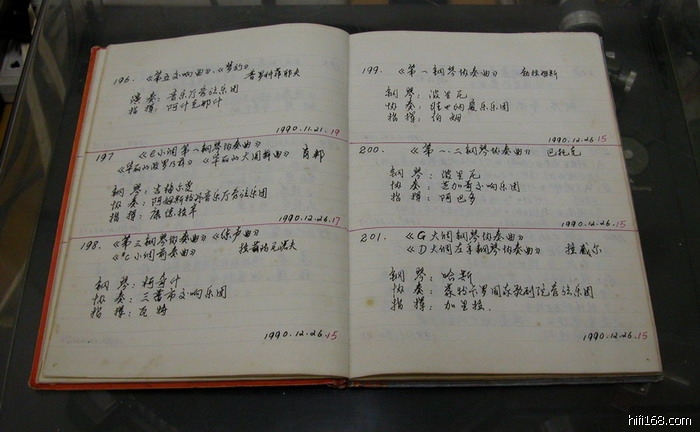 196. 《第五交响曲》、《梦幻》 普罗科菲耶夫
演奏：音乐厅管弦乐团
指挥：阿什肯那什
1990.11.21.19
197 《e小调第一钢琴协奏曲》 肖邦
《华丽的波罗乃兹》《华丽的大圆舞曲》
钢琴：
协奏：阿姆斯特丹音乐厅管弦乐团
指挥：康德拉辛
1990.12.26.17
198. 《第三钢琴协奏曲》《练声曲》 拉赫玛尼诺夫
《#C小调前奏曲》
钢琴：柯奇什
协奏：三藩市交响乐团
指挥：瓦特
1990.12.26.15
199. 《第一钢琴协奏曲》 勃拉姆斯
钢琴：波里尼
协奏：维也纳爱乐乐团
指挥：伯姆
1990.12.26 15
200. 《第一、二钢琴协奏曲》 巴托克
钢琴：波里尼
协奏：芝加哥交响乐团
指挥：阿巴多
1990.12.26.15
201. 《G大调钢琴协奏曲》
《D大调左手钢琴协奏曲》 拉威尔
钢琴：哈斯
协奏：蒙特卡罗国家歌剧院管弦乐团
指挥：加里拉.
1990.12.26.15
hifi168.com